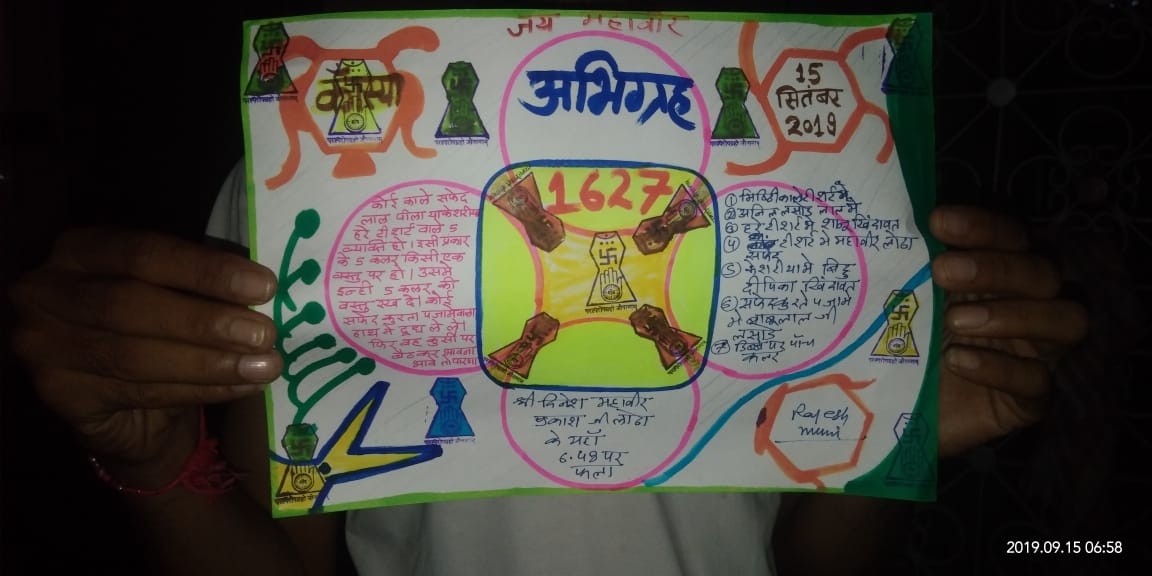 जय महावीर
तपस्या
अभिग्रह
15
सितंबर
2019
1627
कोई काले सफेद
लाल पीला या केशरीया
हरे टी शर्ट वाले 5
व्यक्ति हो। इसी प्रकार
के 5 कलर किसी एक
वस्तु पर हो। उसमे
इन्ही 5 कलर की
वस्तु रख दे। कोई
सफेद कुरता पजामे वाला
हाथ मे दूध ले ले।
फिर वह कुर्सी पर
बैठकर भावना
भावे तो पारणा
① मिट्ठी काले टी शर्ट मे
② अनिल लसोड लाल मे
③ हरे टी शर्ट मे शब्द खिंदावत
④ टी शर्ट मे महावीर लोढा
सफेद
⑤ केशरीया मे बिट्टु
दीपिका खिंदावत
⑥ सफेद कुरते पजामे
मे बाबुलाल जी
लसोड
⑦ डिब्बे पर पाँच
कलर
श्री दिनेश महावीर
प्रकाश जी लोढा
के यहाँ
6.58 पर
फला
Rajesh
muni
परस्परोपग्रहो जीवानाम्
2019.09.15 06:58